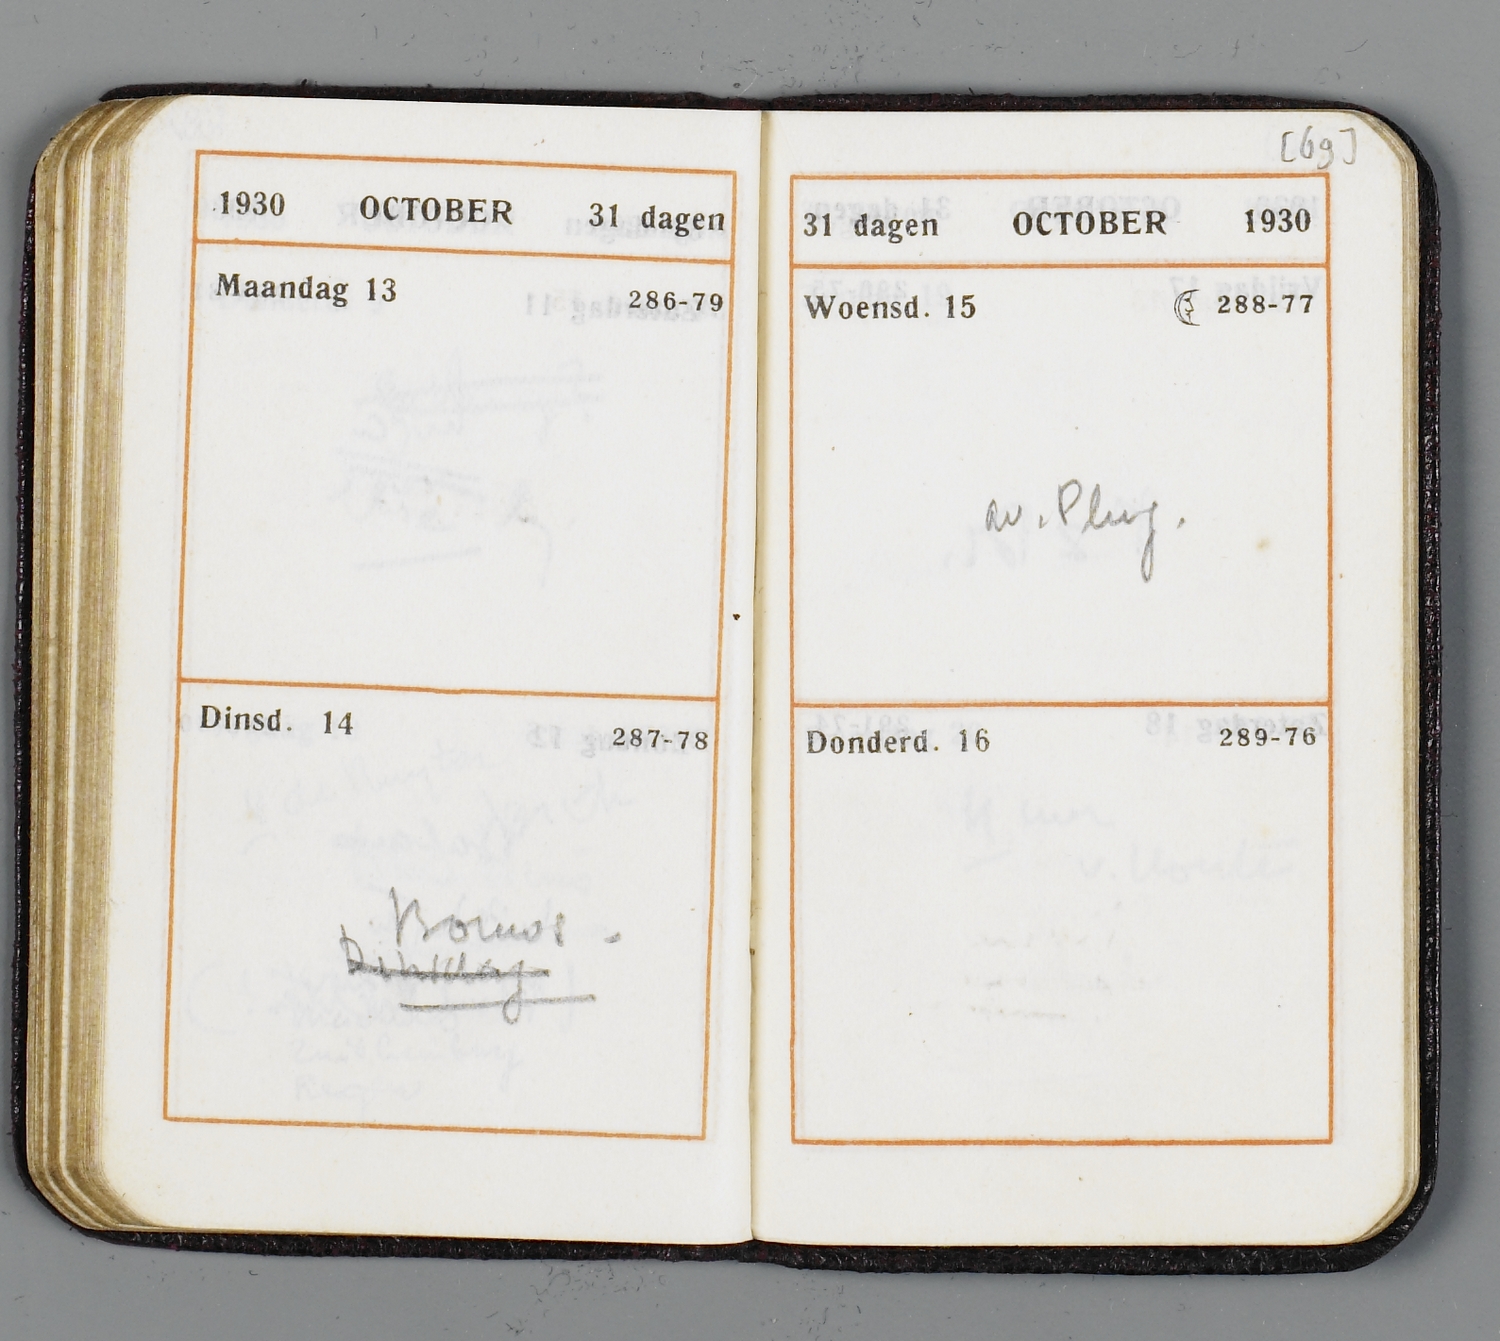 1930 OCTOBER 31 dagen
Maandag 13 286-79
Dinsd. 14 287-78
Dinsdag
[69]
31 dagen OCTOBER 1930
Woensd. 15 288-77
av. Plug.
Donderd. 16 289-76